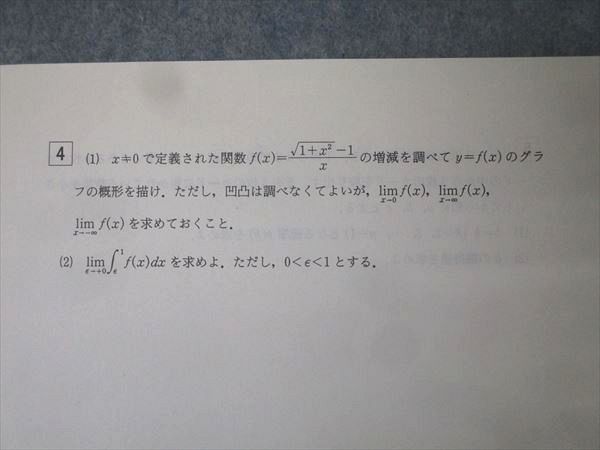 4 (1) x≠0 で定義された関数 f(x)=\frac{\sqrt{1+x^2}-1}{x} の増減を調べて y=f(x) のグラ
フの概形を描け．ただし，凹凸は調べなくてよいが，\lim_{x→0} f(x), \lim_{x→∞} f(x),
\lim_{x→-∞} f(x) を求めておくこと．
(2) \lim_{ε→+0} \int_ε^1 f(x)dx を求めよ．ただし，0<ε<1 とする．